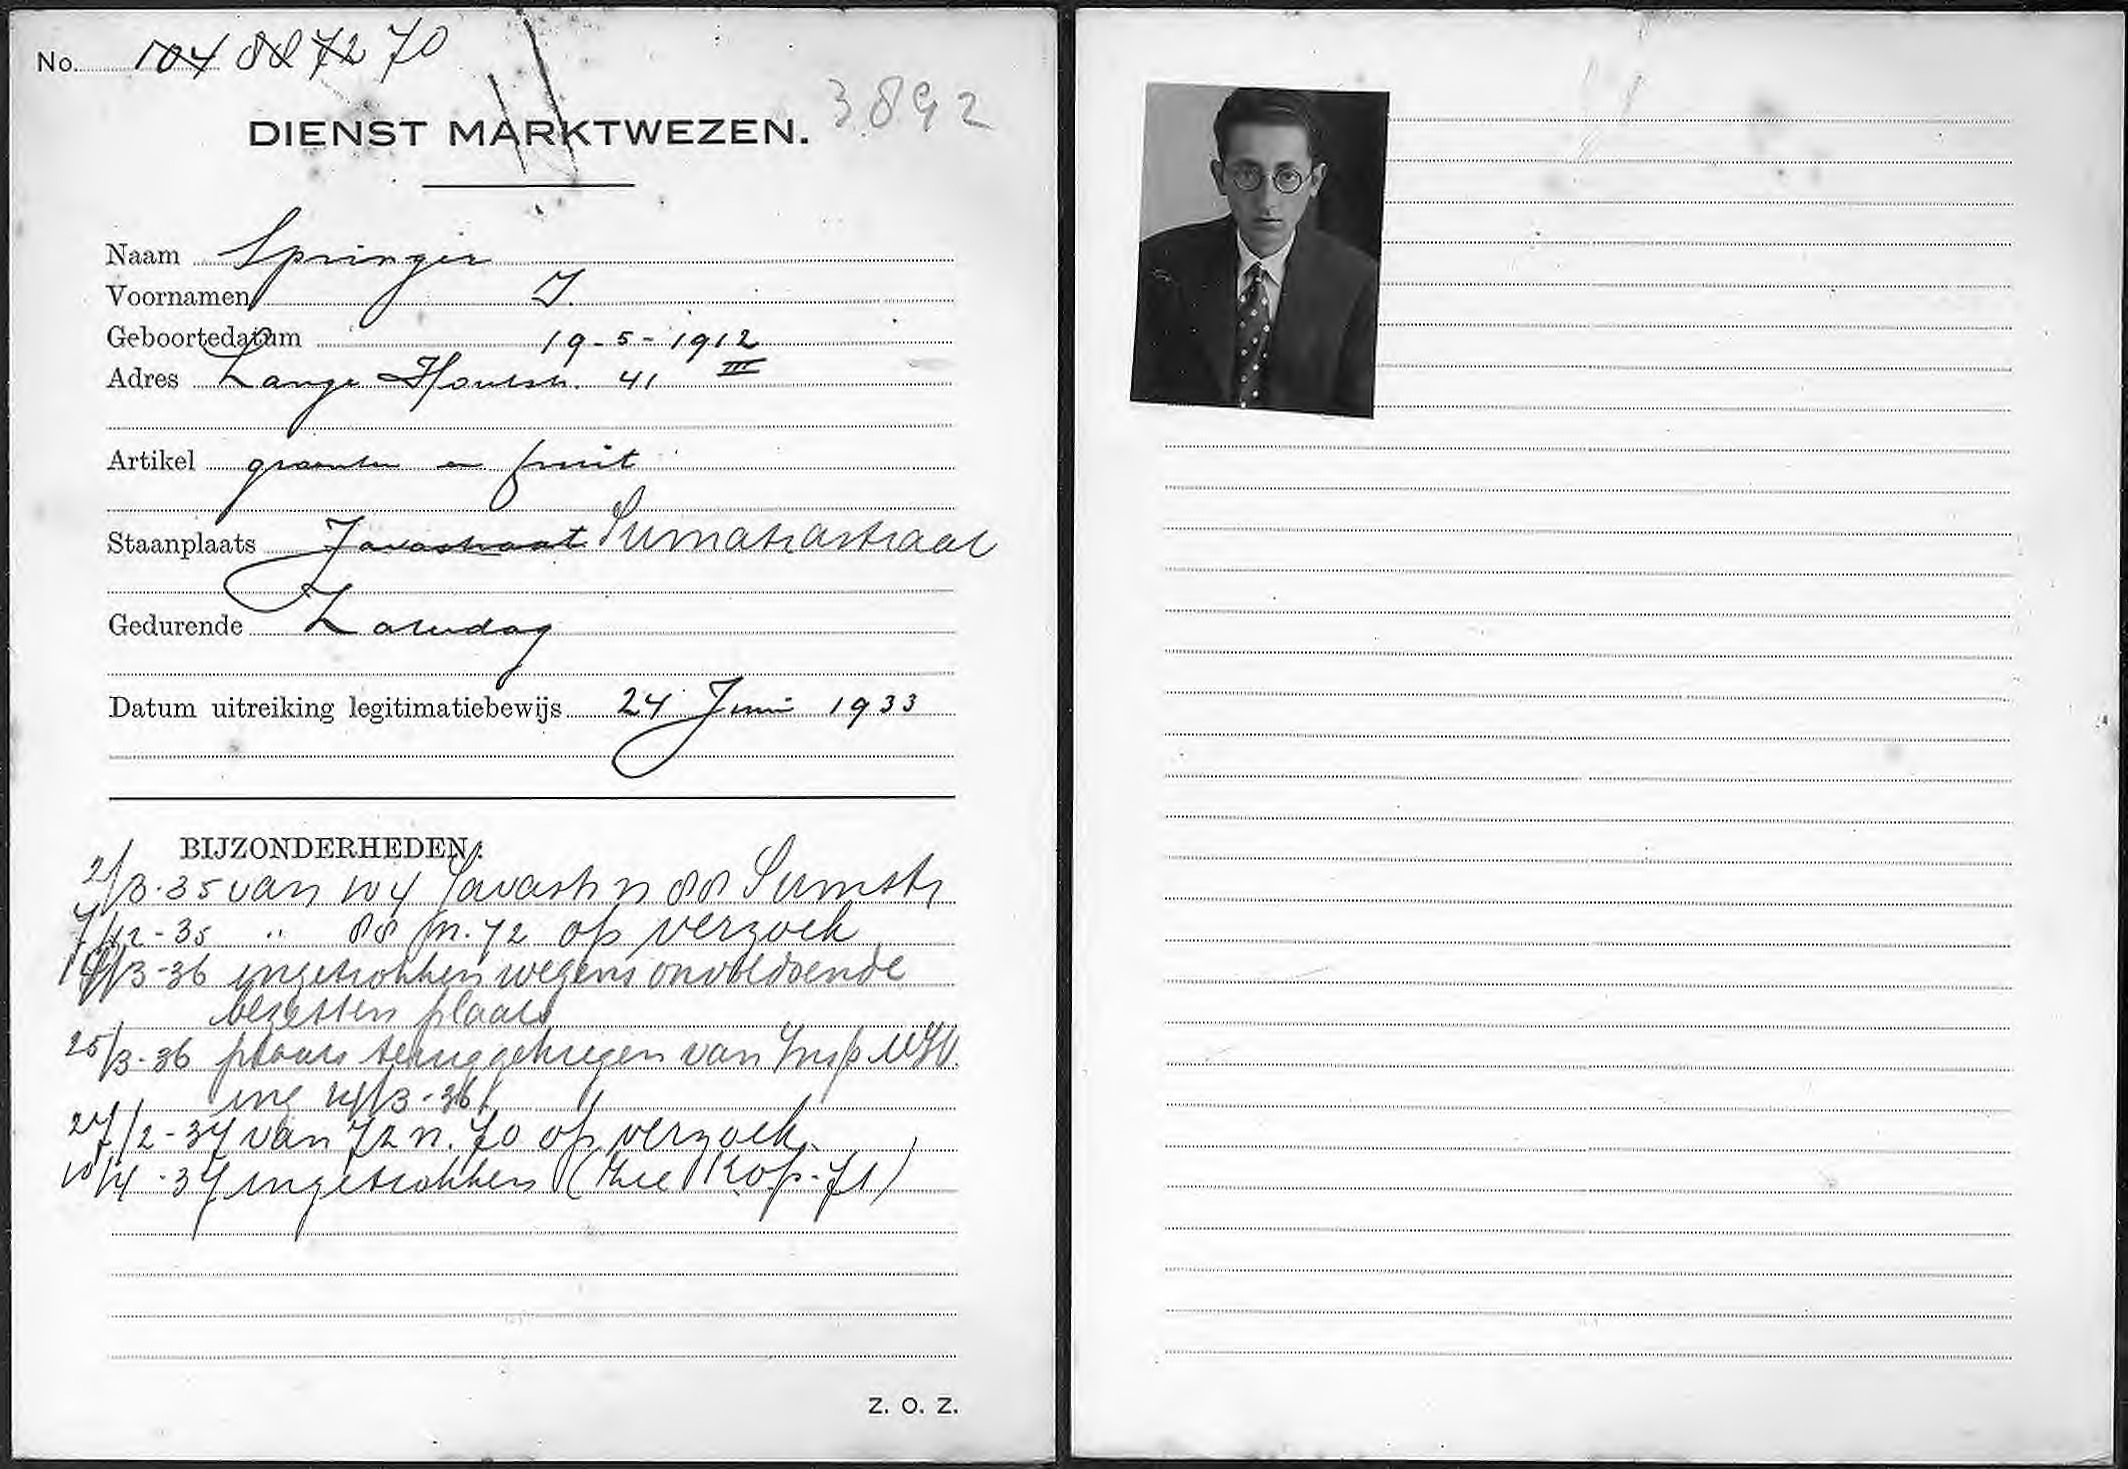 No. 104 88 72 70
3892
DIENST MARKTWEZEN.
Naam Springer
Voornamen J.
Geboortedatum 19-5-1912
Adres Lange Houtstr. 41 III
Artikel groenten en fruit
Staanplaats Javastraat Sumatrastraat
Gedurende Zaterdag
Datum uitreiking legitimatiebewijs 24 Juni 1933
BIJZONDERHEDEN:
2/3-35 van 104 Javastr n 88 Sumstr
7/12-35 " 88 n. 72 op verzoek
14/3-36 ingetrokken wegens onvoldoende
bezetten plaats
25/3-36 plaats teruggekregen van Insp.
ing 14/3-36
27/2-37 van 72 n. 70 op verzoek.
10/4-37 ingetrokken (zie Kop-71)
Z. O. Z.